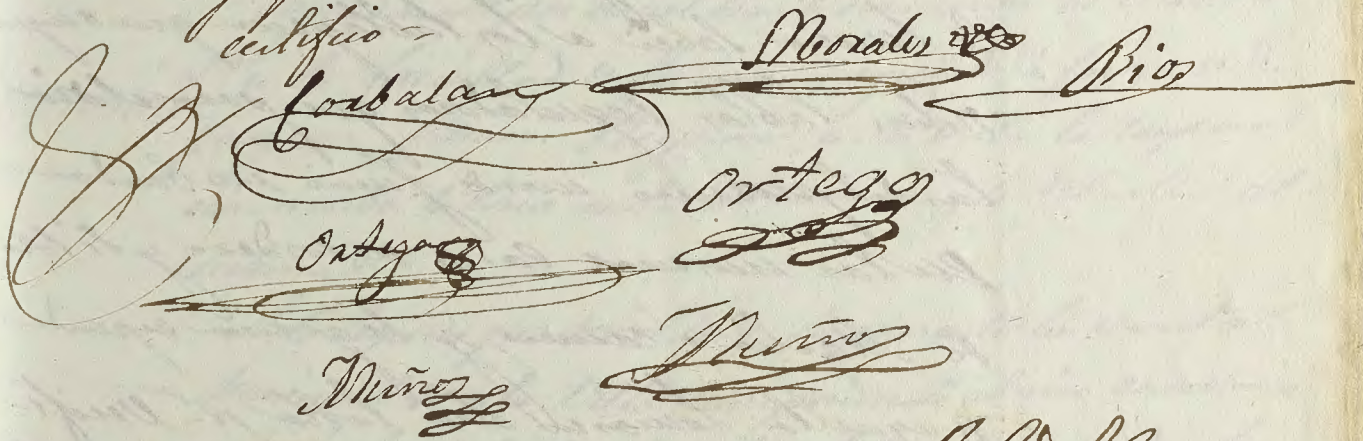 certifico =
Corbalan Morales Rios
Ortega Ortega
Muñoz Muñoz